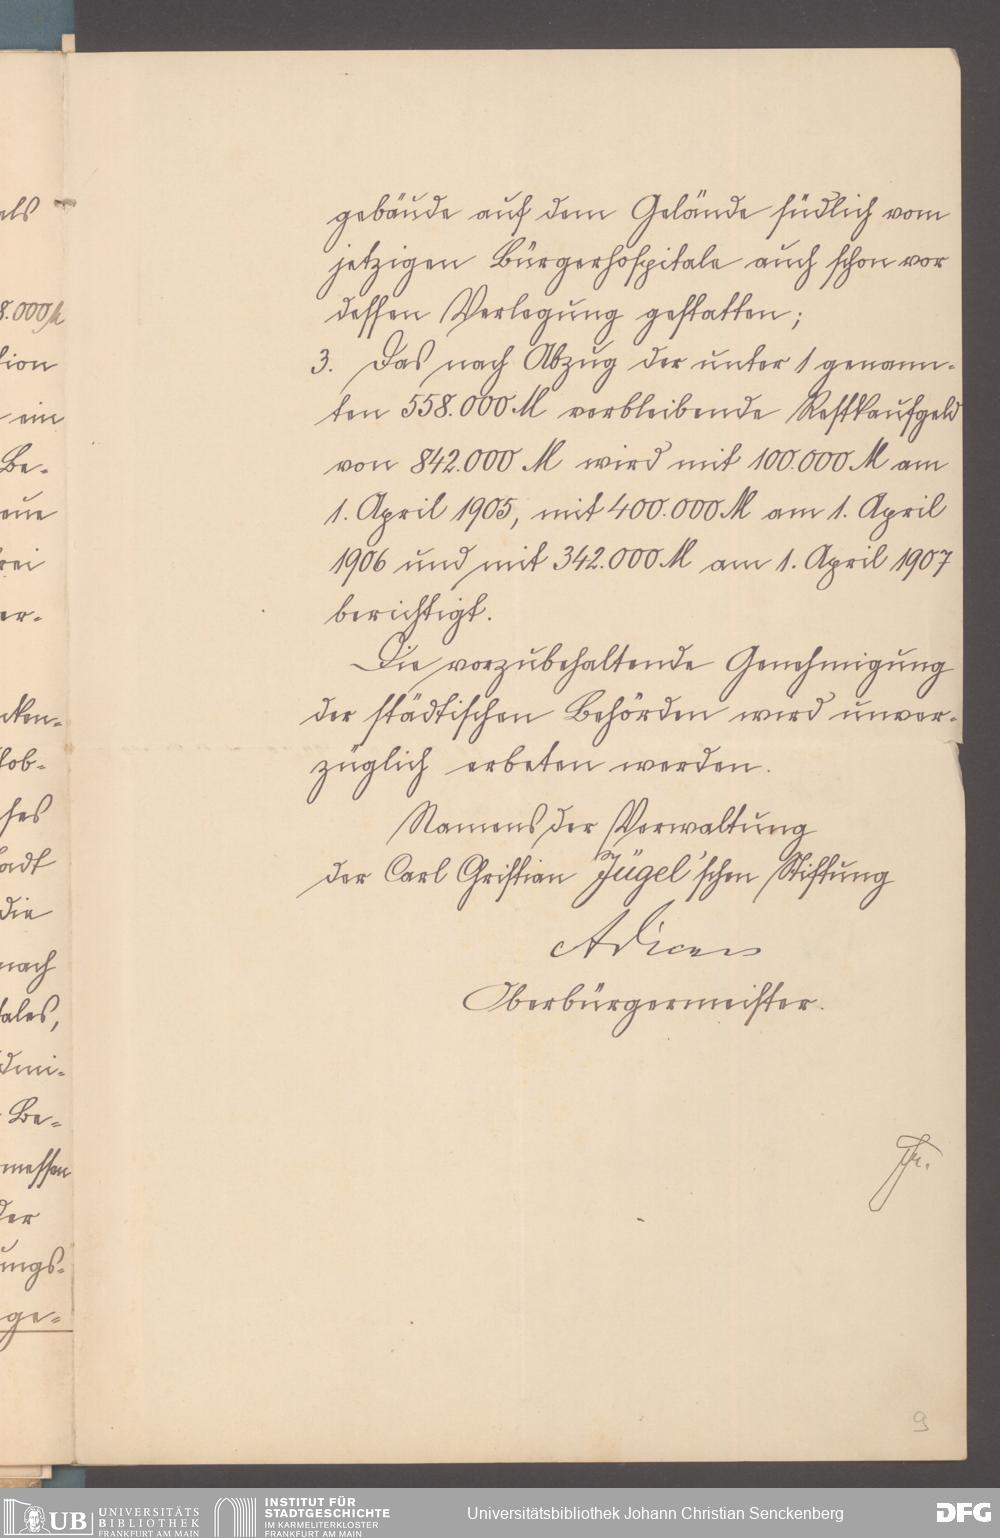 gebäude auf dem Gelände südlich vom
jetzigen Bürgerhospitale auch schon vor
dessen Verlegung gestatten;
3. Das nach Abzug der unter 1 genann-
ten 558.000 M verbleibende Restkaufgeld
von 842.000 M wird mit 100.000 M am
1. April 1905, mit 400.000 M am 1. April
1906 und mit 342.000 M am 1. April 1907
berichtigt.
Die vorzubehaltende Genehmigung
der städtischen Behörden wird unver-
züglich erbeten werden.
Namens der Verwaltung
der Carl Christian Jügel'schen Stiftung
Adickes
Oberbürgermeister.
9
als
8.000 M
tion
ein
Be-
eue
rei
er-
cken-
ses
die
nach
tales,
Be-
messen
der
ungs-
ge-
UB UNIVERSITÄTS
BIBLIOTHEK
FRANKFURT AM MAIN
INSTITUT FÜR
STADTGESCHICHTE
IM KARMELITERKLOSTER
FRANKFURT AM MAIN
Universitätsbibliothek Johann Christian Senckenberg
DFG